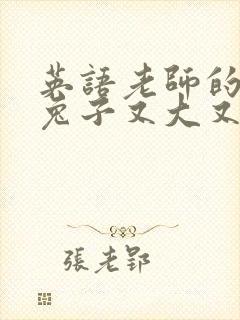 英語老師的
兔子又大又
張老郢